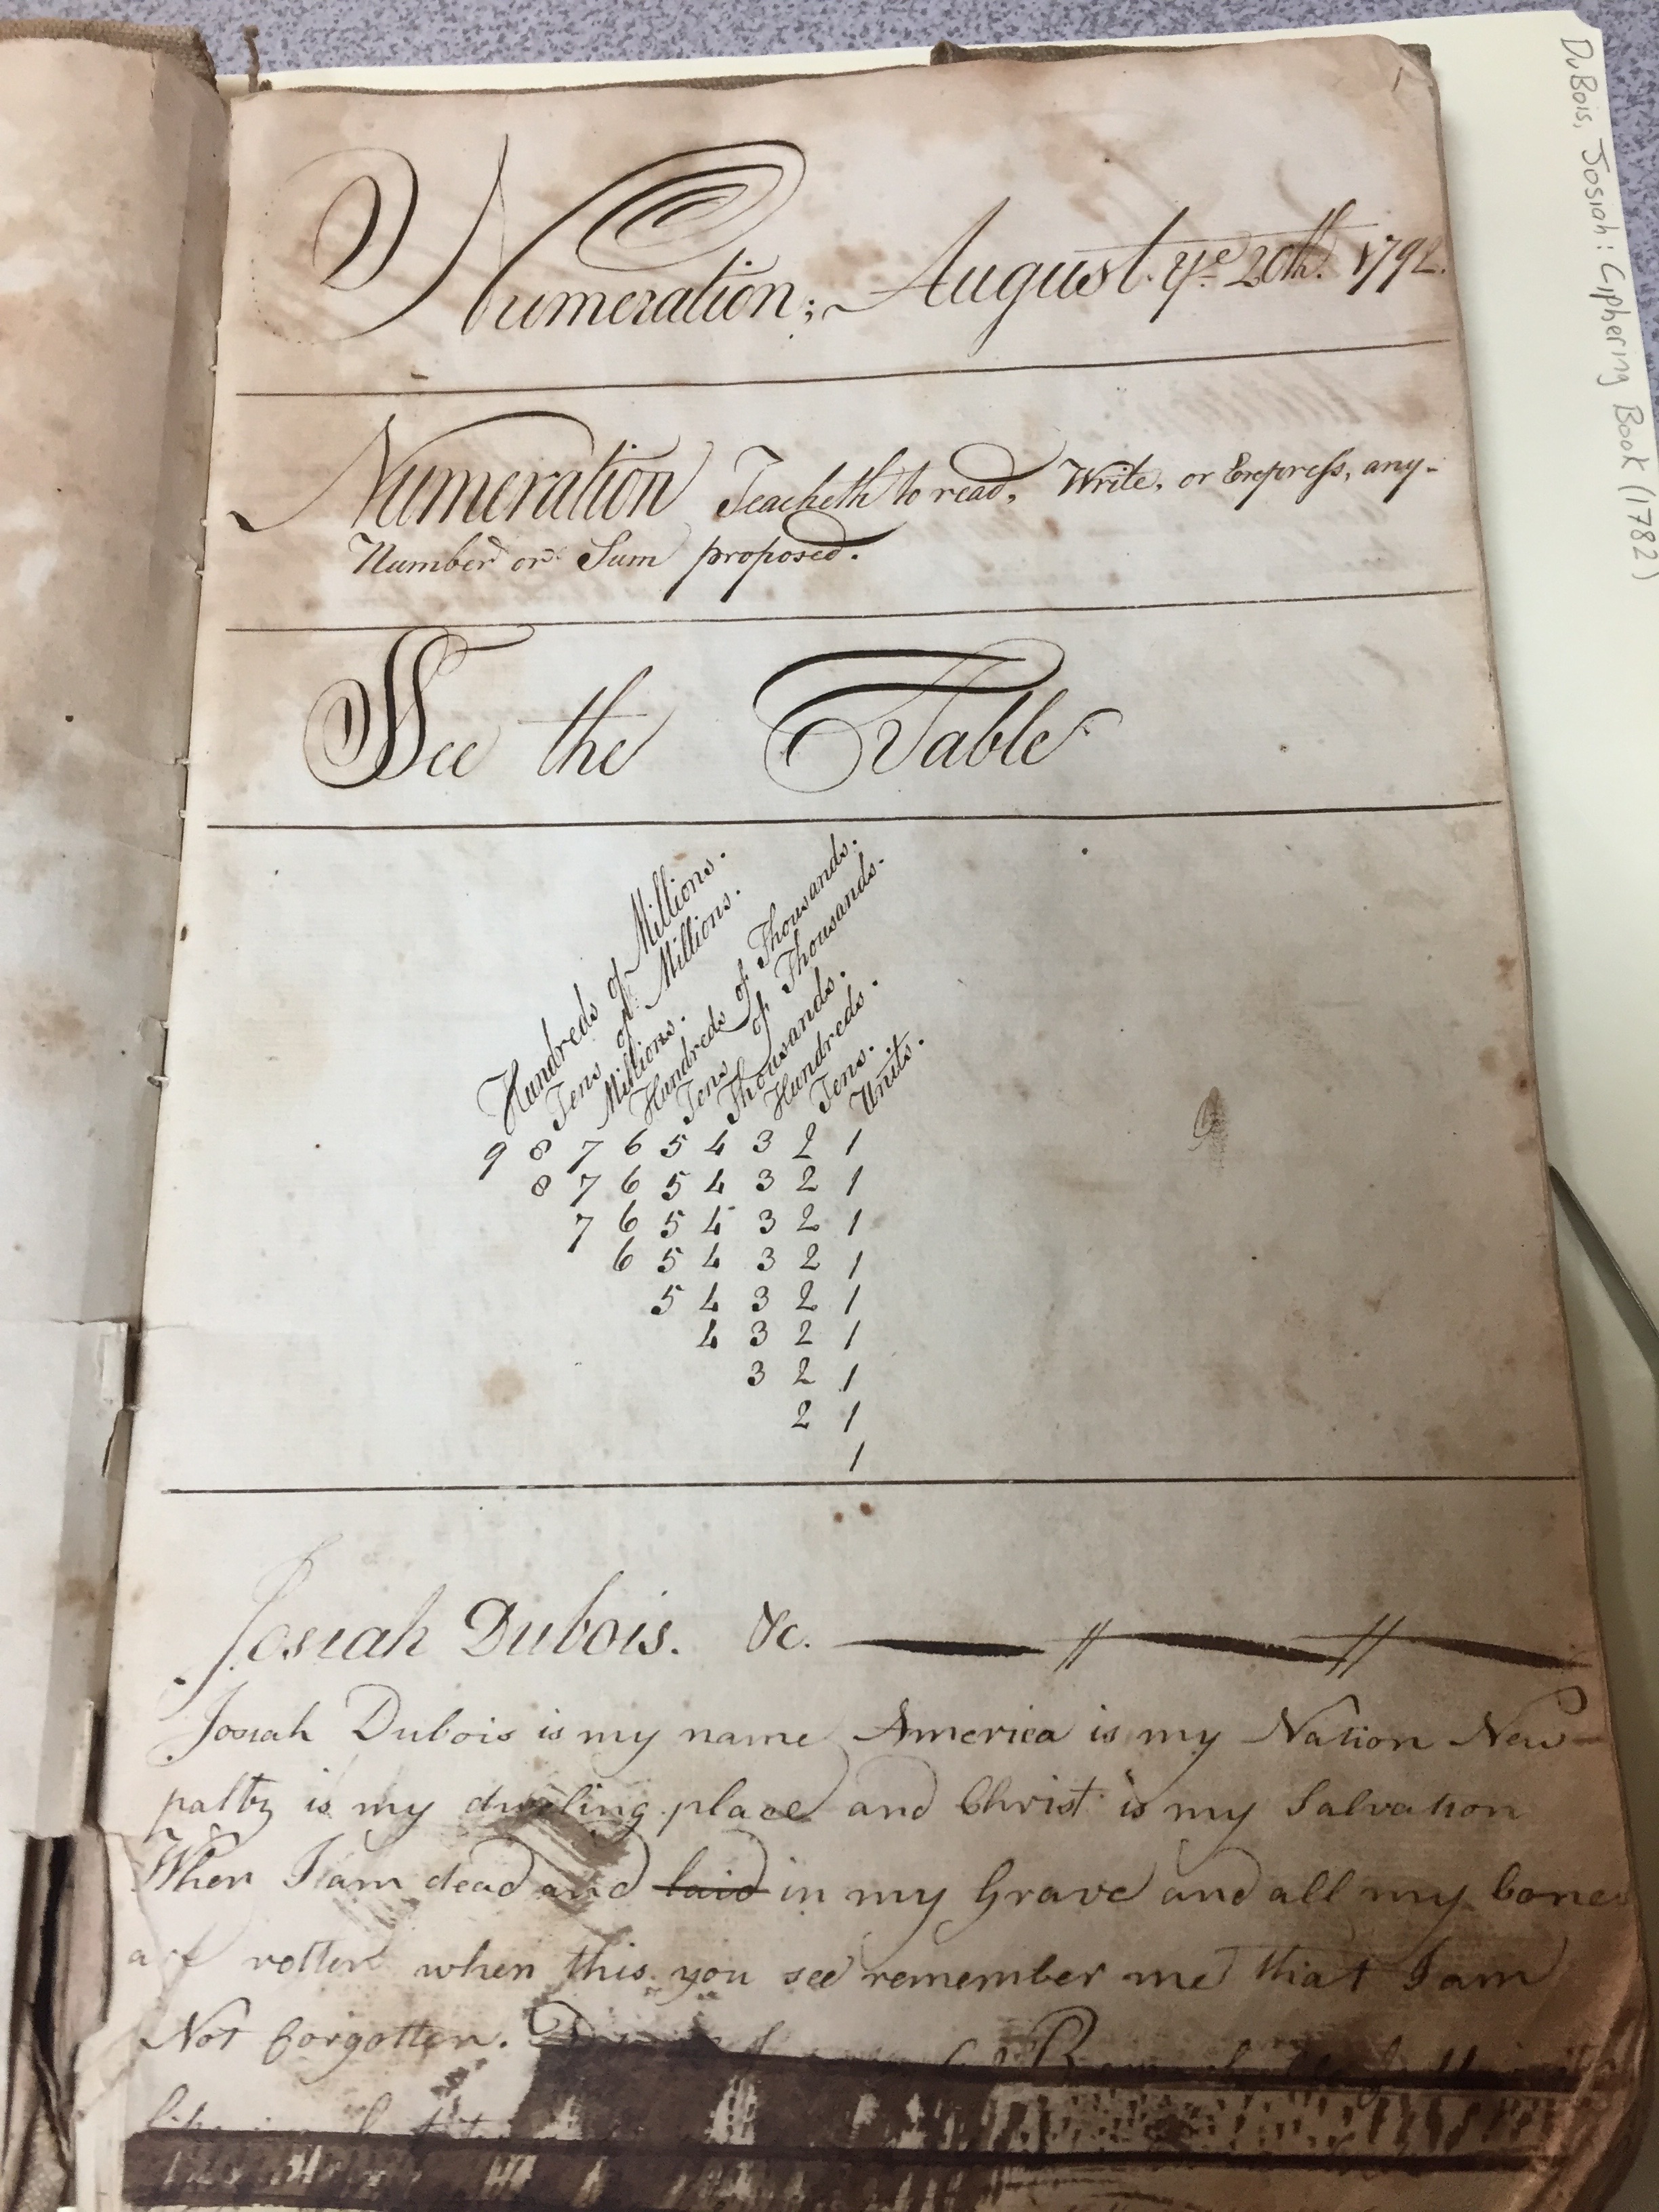 Numeration; August yᵉ 20th. 1792.
Numeration Teacheth to read, Write, or Express, any
Number or Sum proposed.
See the Table
Hundreds of Millions.
Tens of Millions.
Millions.
Hundreds of Thousands.
Tens of Thousands.
Thousands.
Hundreds.
Tens.
Units.
9 8 7 6 5 4 3 2 1
8 7 6 5 4 3 2 1
7 6 5 4 3 2 1
6 5 4 3 2 1
5 4 3 2 1
4 3 2 1
3 2 1
2 1
1
Josiah Dubois. &c.
Josiah Dubois is my name America is my Nation New-
paltz is my dweling place and Christ is my Salvation
When I am dead and laid in my Grave and all my bones
are rotten when this you see remember me that I am
Not forgotten.
DuBois, Josiah: Ciphering Book (1782)